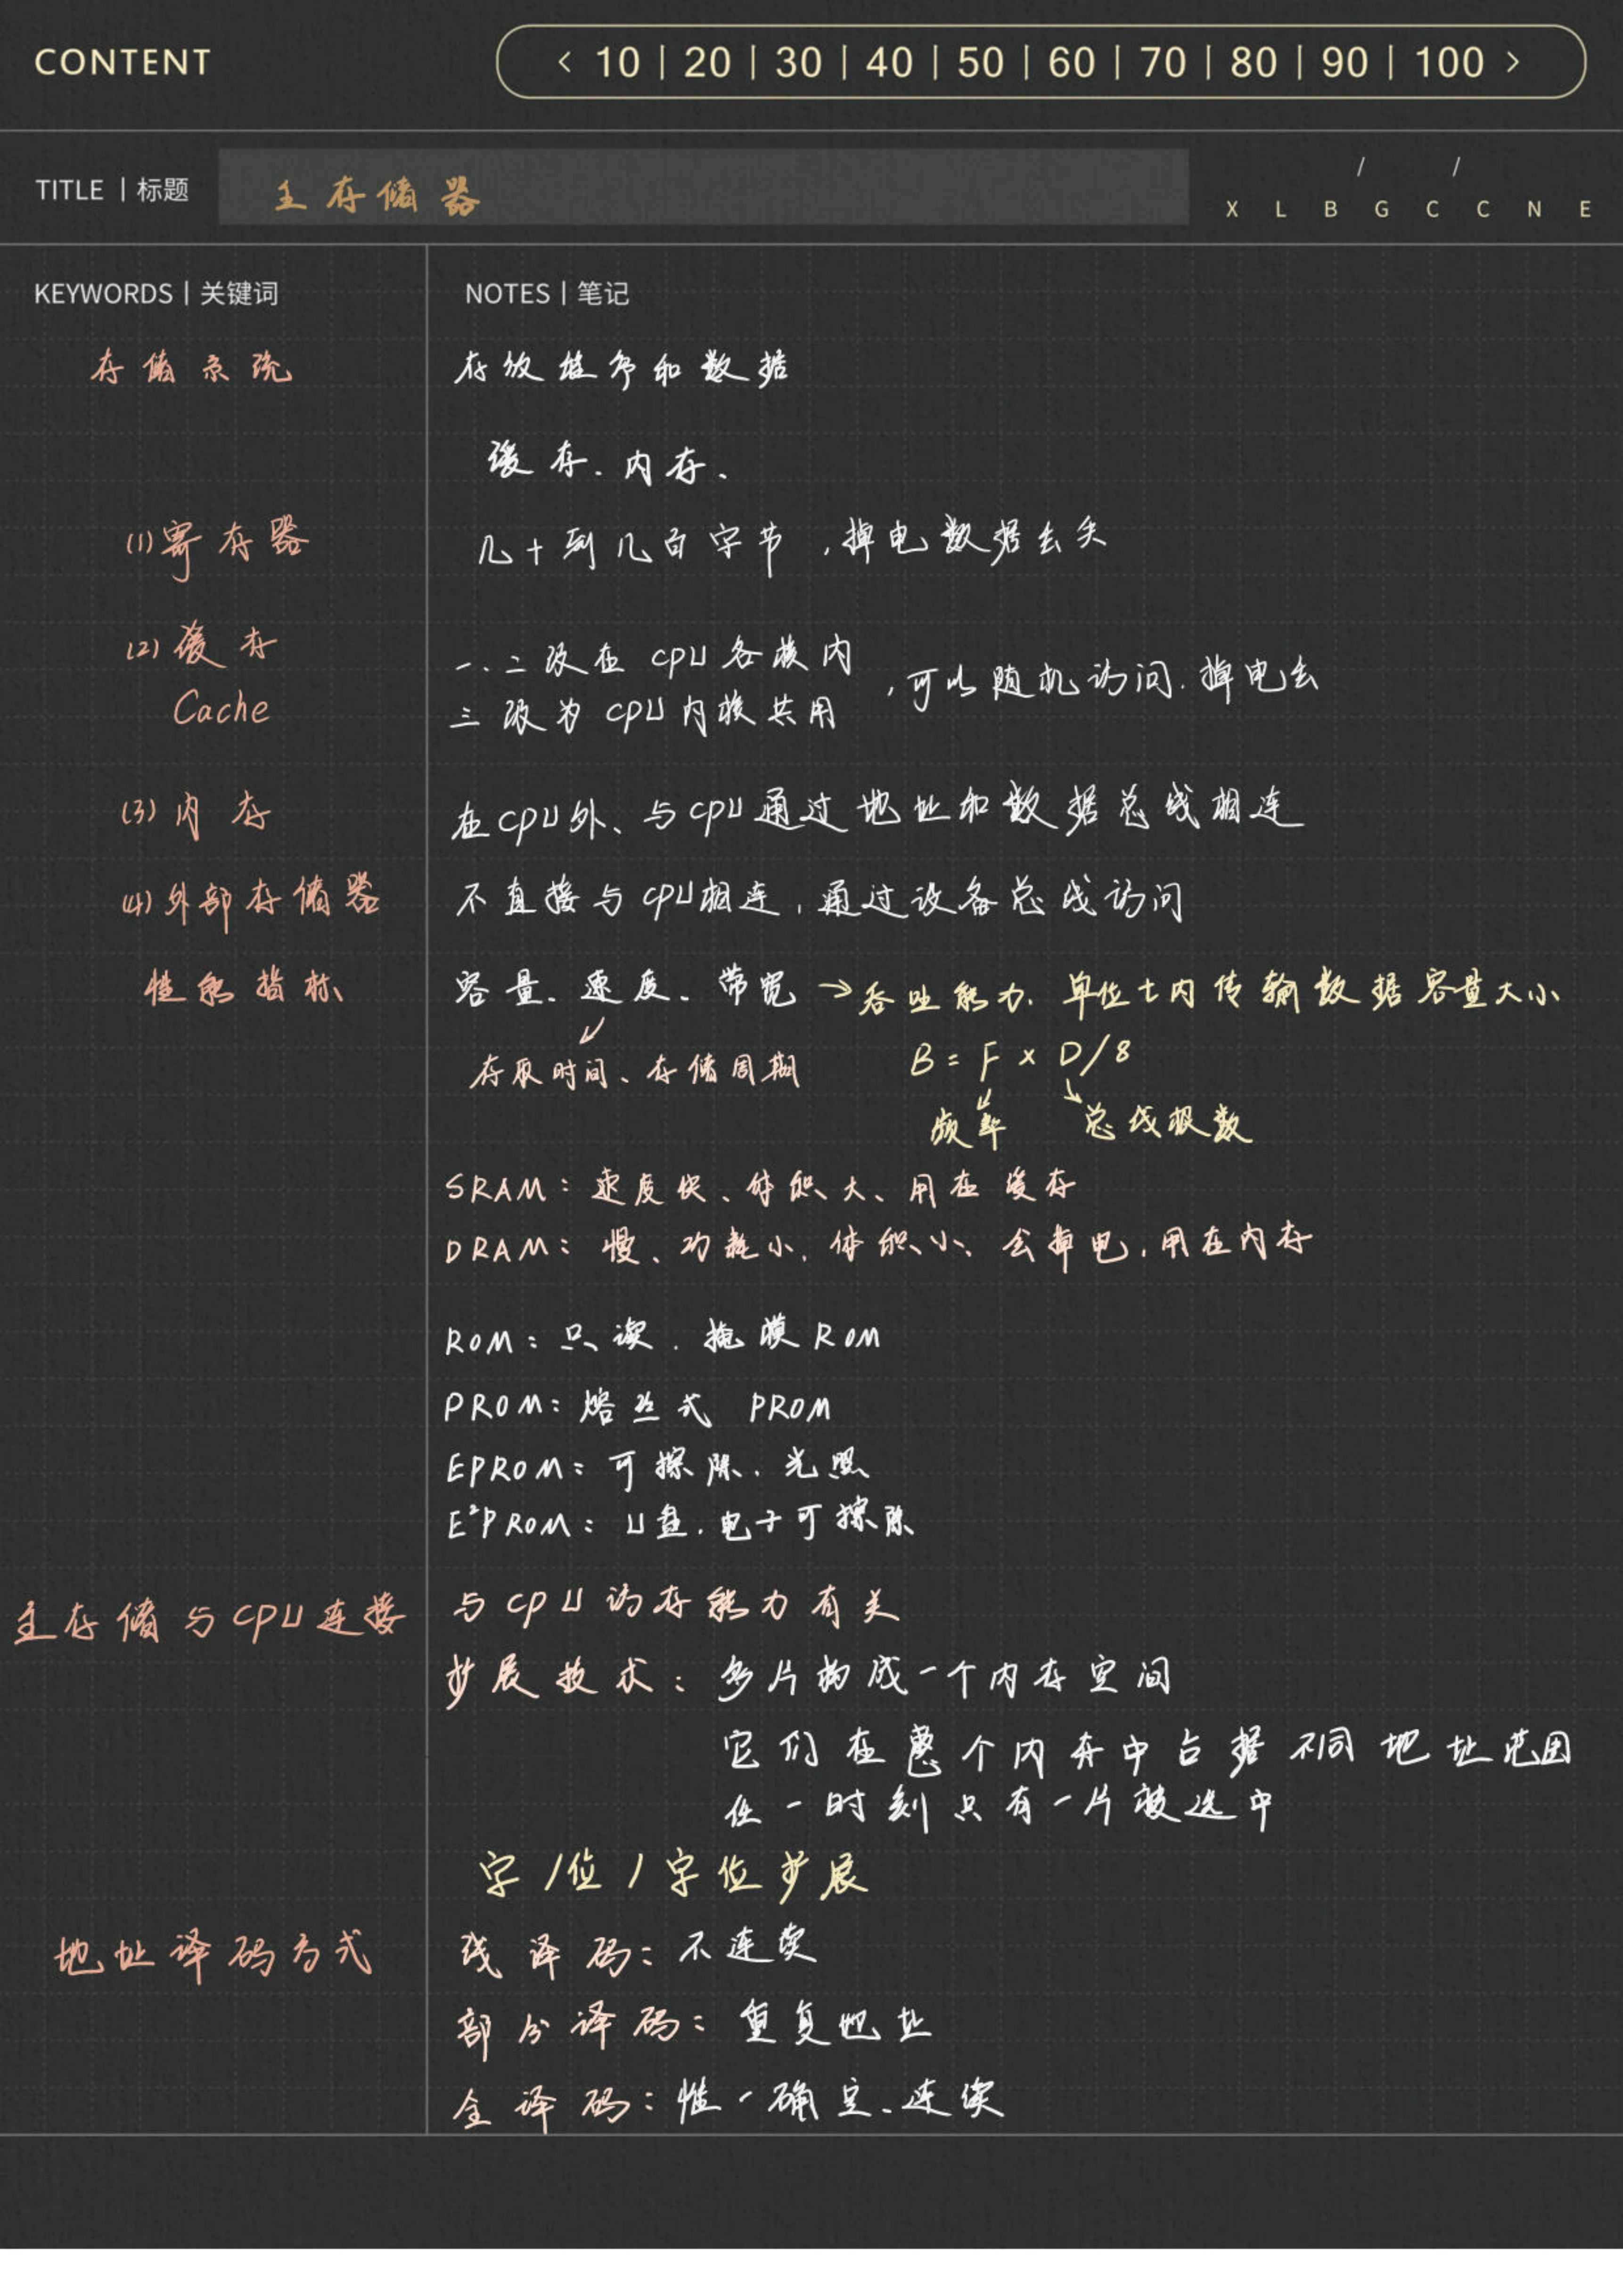 CONTENT
< 10 | 20 | 30 | 40 | 50 | 60 | 70 | 80 | 90 | 100 >
TITLE | 标题 主存储器
/ /
X L B G C C N E
KEYWORDS | 关键词
NOTES | 笔记
存储系统
存放程序和数据
缓存、内存、
(1) 寄存器
几十到几百字节,掉电数据丢失
(2) 缓存
Cache
一、二级在CPU各核内
三级为CPU内核共用
,可以随机访问、掉电丢
(3) 内存
在CPU外、与CPU通过地址和数据总线相连
(4) 外部存储器
不直接与CPU相连,通过设备总线访问
性能指标
容量、速度、带宽→吞吐能力、单位t内传输数据容量大小
存取时间、存储周期
B = F × D/8
频率 总线根数
SRAM:速度快、体积大、用在缓存
DRAM:慢、功耗小、体积小、会掉电,用在内存
ROM:只读、掩膜ROM
PROM:熔丝式 PROM
EPROM:可擦除、光照
E²PROM:U盘、电子可擦除
主存储与CPU连接
与CPU访存能力有关
扩展技术:多片构成一个内存空间
它们在整个内存中占据不同地址范围
任一时刻只有一片被选中
字/位/字位扩展
地址译码方式
线译码:不连续
部分译码:重复地址
全译码:惟一确定、连续